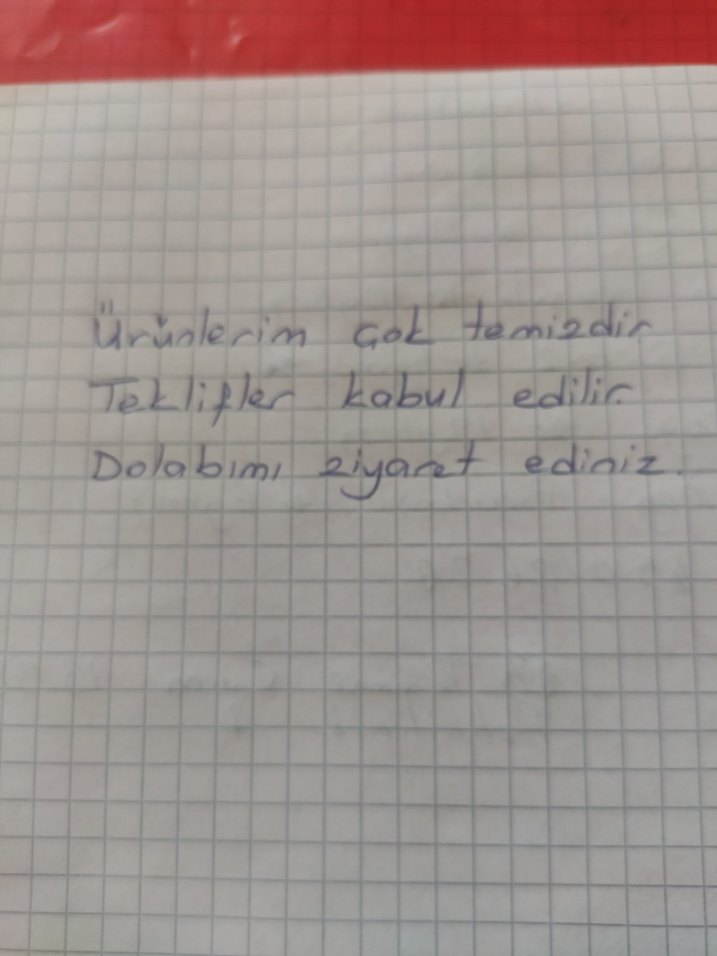 Ürünlerim çok temizdir
Teklifler kabul edilir.
Dolabımı ziyaret ediniz.